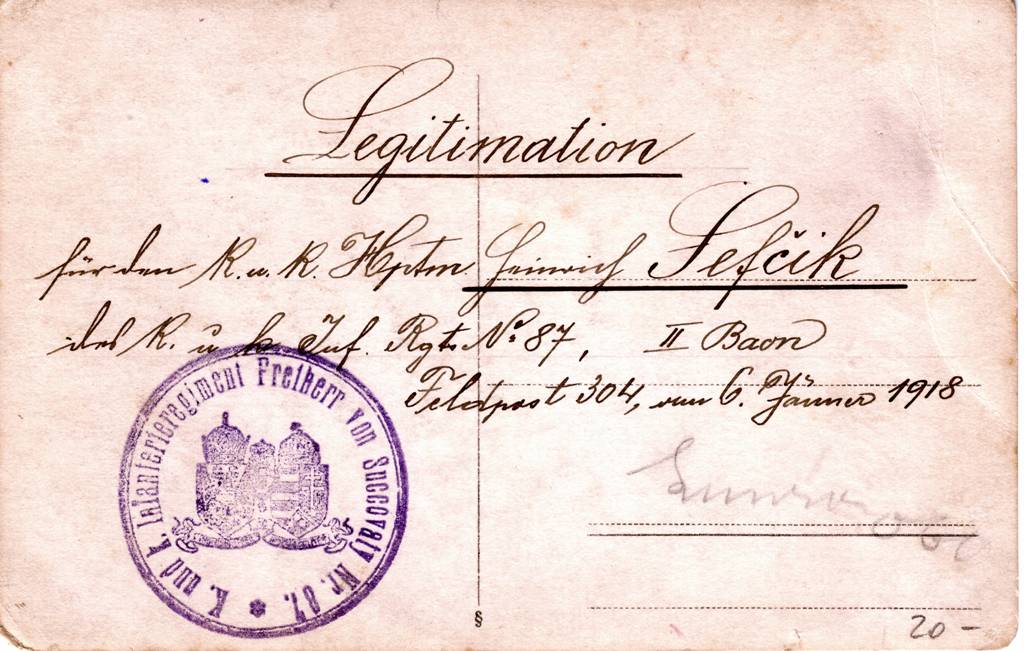 Legitimation
für den K. u. K. Hptm. Heinrich Sefčik
des K. u. k. Inf. Rgts. Nº 87, II Baon
Feldpost 304, am 6. Jänner 1918
K. und k. Infanterieregiment Freiherr von Succovaty Nr. 87.
§
20 -